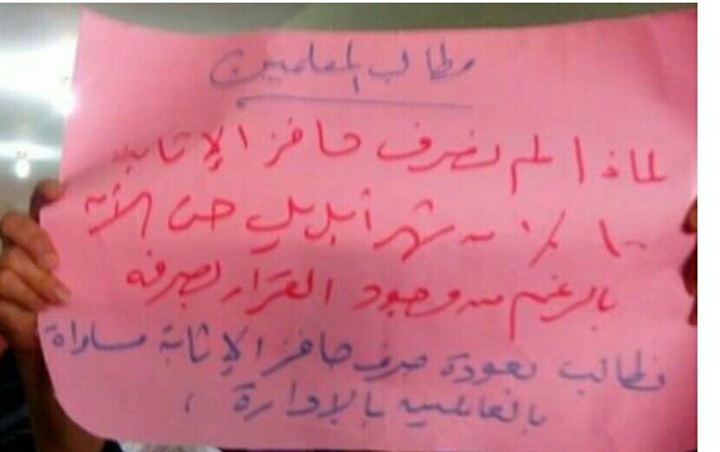 مطالب المعلمين
لماذا لم نصرف حافز الإثابة
١٠٠٪ من شهر أبريل حتى الآن
بالرغم من وجود القرار بصرفه
نطالب بعودة صرف حافز الإثابة مساواة
بالعاملين بالإدارة